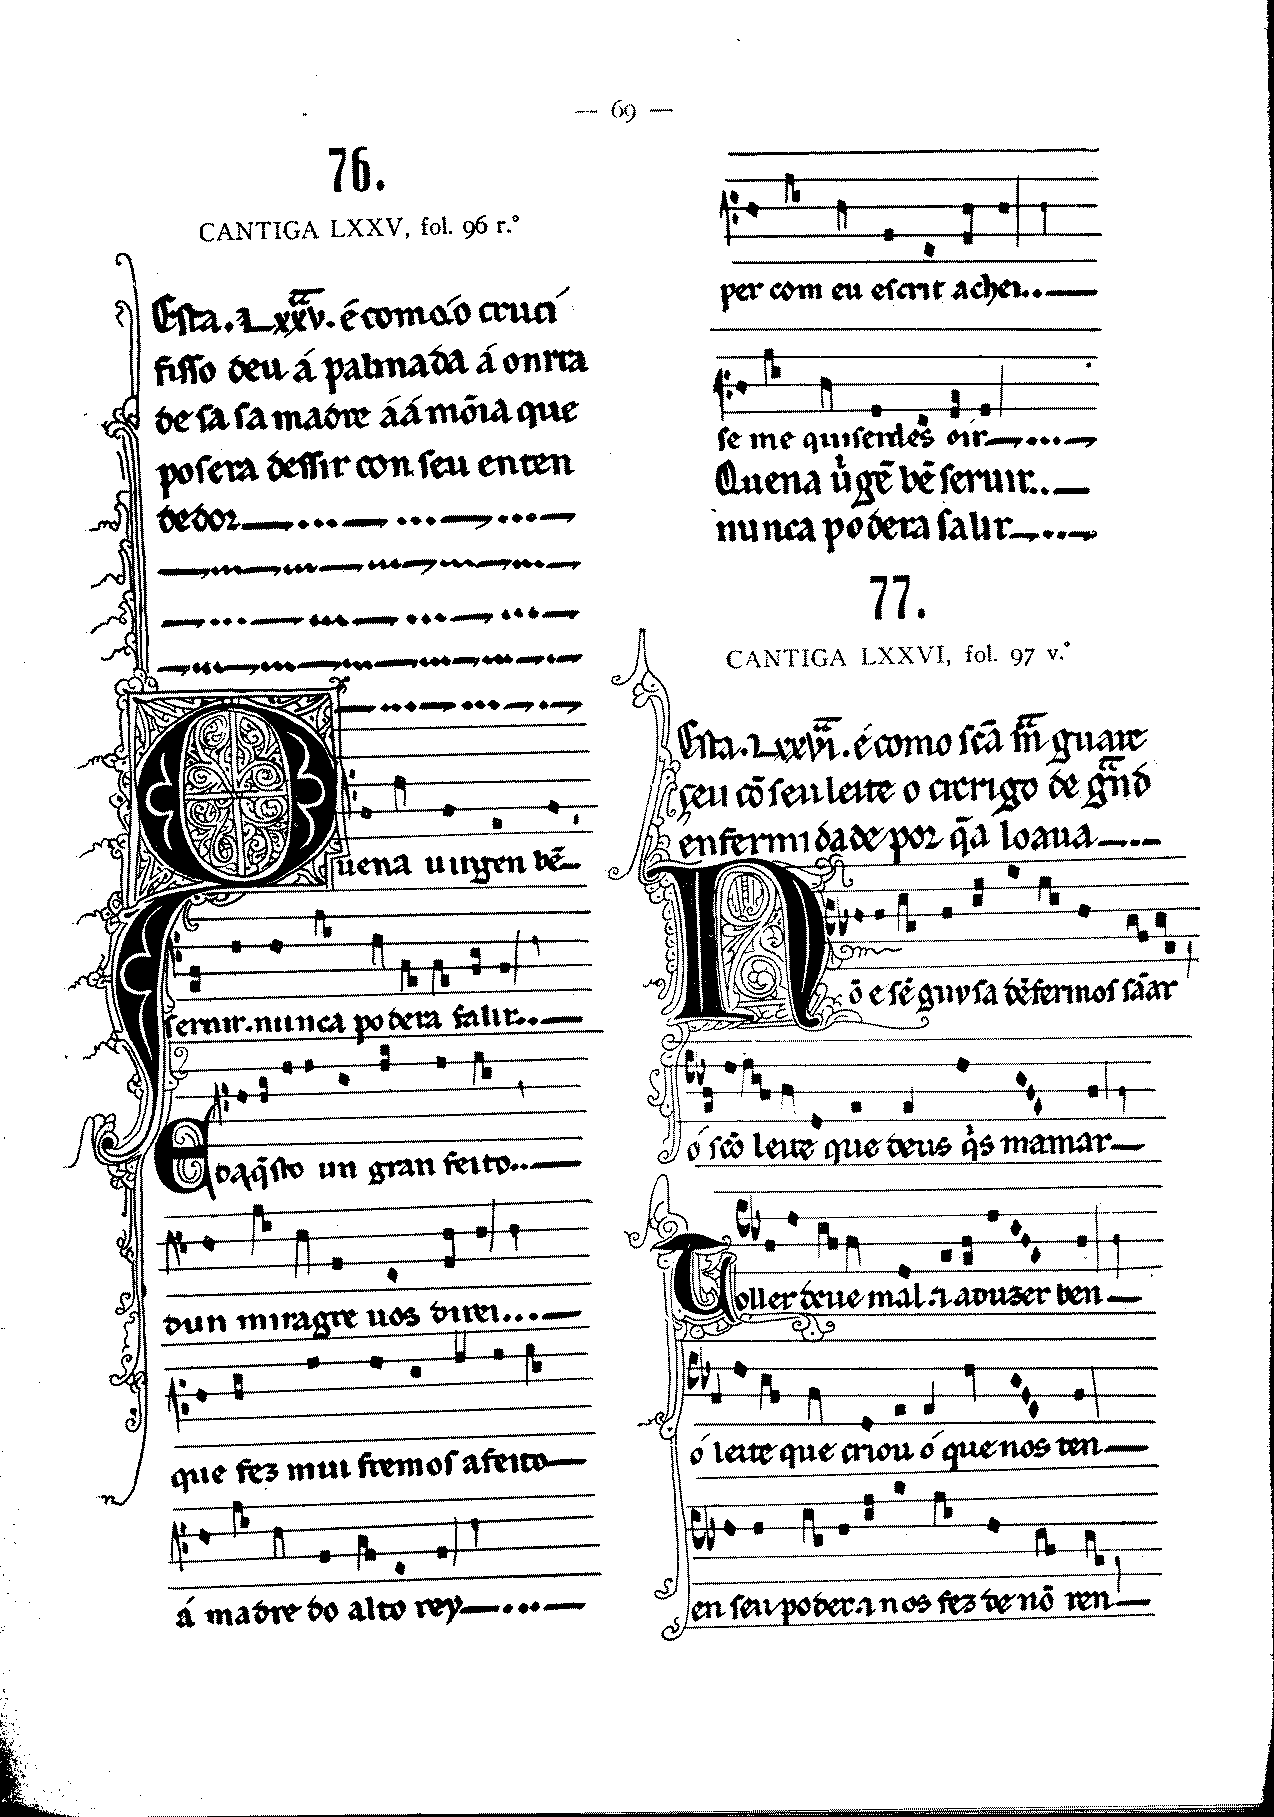 — 69 —
76.
CANTIGA LXXV, fol. 96 r.º
Esta .LXXV. é como o cruci
fisso deu á palmada á onrra
de sa sa madre áá mõia que
posera dessir con seu enten
dedor
Quena uirgen bẽ
seruir. nunca podera falir..
E daq̃sto un gran feito..
dun miragre uos direi...
que fez mui fremos afeito
á madre do alto rey
per com eu escrit achei..
se me quiserdes oir
Quena uĩgẽ bẽ seruir..
nunca podera falir
77.
CANTIGA LXXVI, fol. 97 v.º
Esta .LXXVI. é como scã mã guare
çeu cõ seu leite o crerigo de gñd
enfermidade por q̃a loaua
Nõ e sẽ guysa dẽfermos sãar
ó scõ leite que deus q̃s mamar
Toller deue mal. ⁊ aduzer ben
ó leite que criou ó que nos ten
en seu poder. ⁊ nos fez de nõ ren